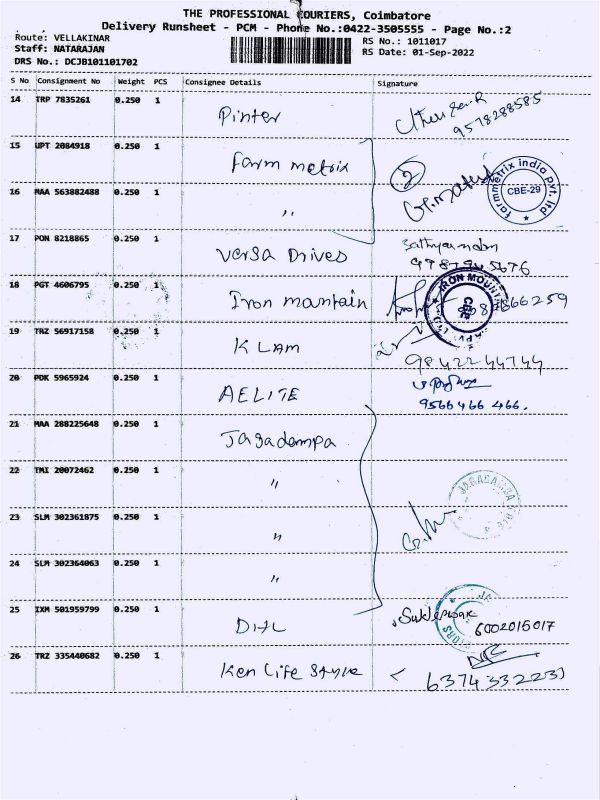 THE PROFESSIONAL COURIERS, Coimbatore
Delivery Runsheet - PCM - Phone No.:0422-3505555 - Page No.:2
Route: VELLAKINAR
Staff: NATARAJAN
DRS No.: DCJB101101702
RS No.: 1011017
RS Date: 01-Sep-2022
S No Consignment No Weight PCS Consignee Details Signature
14 TRP 7835261 0.250 1 Pinter
9578288585
15 UPT 2084918 0.250 1 Farm metrix
2
farmmetrix india pvt. ltd
CBE-29
16 MAA 563882488 0.250 1 ,,
17 PON 8218865 0.250 1 Versa Drives
18 PGT 4606795 0.250 1 Iron mantain
IRON MOUNT
19 TRZ 56917158 0.250 1 KLAM
9842244744
20 PDK 5965924 0.250 1 AELITE
9566466466.
21 MAA 288225648 0.250 1 Jagadampa
22 TMI 20072462 0.250 1 "
JAGADAMBA
23 SLM 302361875 0.250 1 "
24 SLM 302364063 0.250 1 "
25 IXM 501959799 0.250 1 DHL
6002016017
26 TRZ 335440682 0.250 1 Ken Life Style
6374332223